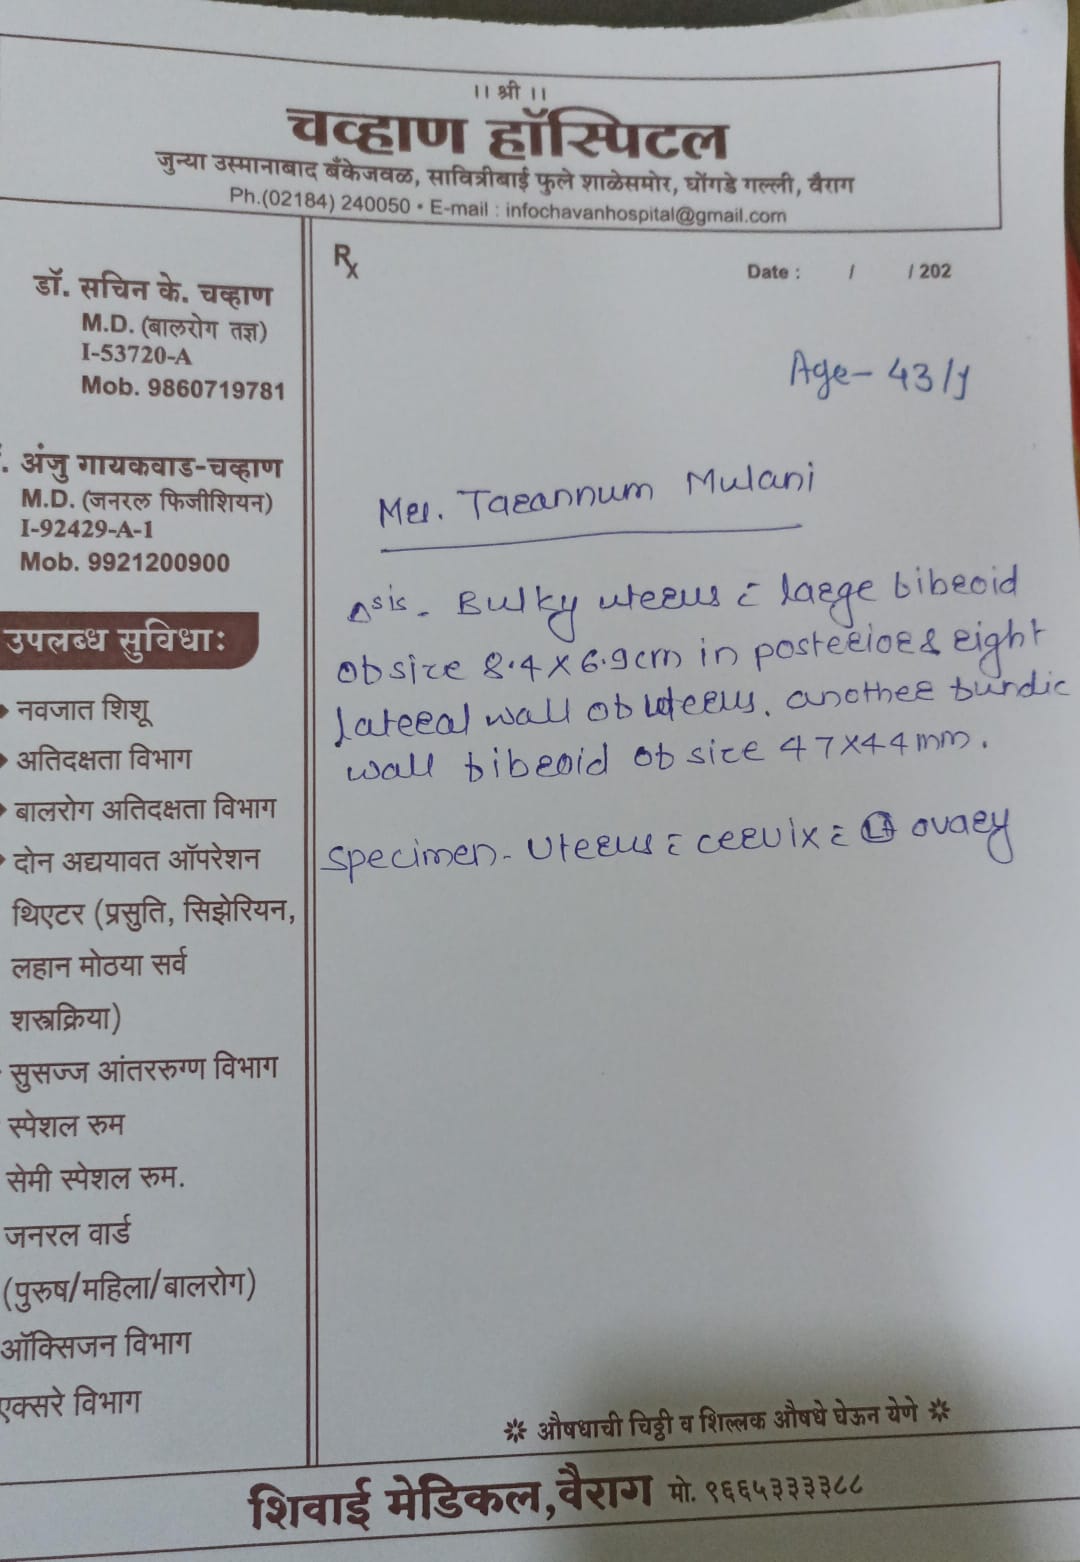 ।। श्री ।।
चव्हाण हॉस्पिटल
जुन्या उस्मानाबाद बँकेजवळ, सावित्रीबाई फुले शाळेसमोर, घोंगडे गल्ली, वैराग
Ph.(02184) 240050 • E-mail : infochavanhospital@gmail.com
डॉ. सचिन के. चव्हाण
M.D. (बालरोग तज्ञ)
I-53720-A
Mob. 9860719781
. अंजु गायकवाड-चव्हाण
M.D. (जनरल फिजीशियन)
I-92429-A-1
Mob. 9921200900
उपलब्ध सुविधा:
नवजात शिशू
अतिदक्षता विभाग
बालरोग अतिदक्षता विभाग
दोन अद्ययावत ऑपरेशन
थिएटर (प्रसुति, सिझेरियन,
लहान मोठया सर्व
शस्त्रक्रिया)
सुसज्ज आंतररुग्ण विभाग
स्पेशल रुम
सेमी स्पेशल रुम.
जनरल वार्ड
(पुरुष/महिला/बालरोग)
ऑक्सिजन विभाग
एक्सरे विभाग
Rx
Date : / / 202
Age - 43/y
Mrs. Tarannum Mulani
Δsis - Bulky uterus c̄ large fibroid
of size 8.4 x 6.9cm in posterior & right
lateral wall of uterus. another fundic
wall fibroid of size 47x44mm.
specimen - Uterus c̄ cervix c̄ ovary
❊ औषधाची चिठ्ठी व शिल्लक औषधे घेऊन येणे ❊
शिवाई मेडिकल, वैराग मो. ९६६५३३३३८८